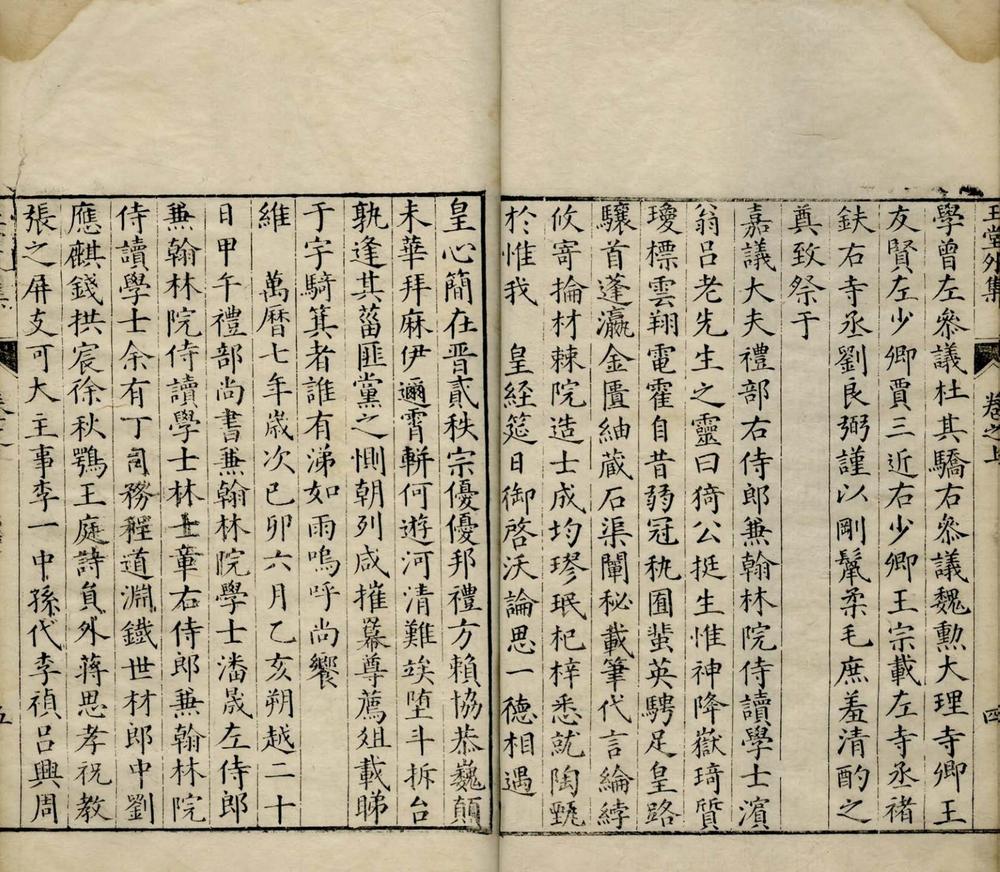 玉堂外集
卷之上
四
學曾左參議杜其驕右參議魏勳大理寺卿王
友賢左少卿賈三近右少卿王宗載左寺丞褚
鈇右寺丞劉良弼謹以剛鬣柔毛庶羞清酌之
奠致祭于
嘉議大夫禮部右侍郎兼翰林院侍讀學士濵
翁呂老先生之靈曰猗公挺生惟神降嶽琦質
瓊標雲翔電霍自昔弱冠秇囿蜚英騁足皇路
驤首蓬瀛金匱紬藏石渠闡秘載筆代言綸綍
攸寄掄材棘院造士成均璆珉杞梓悉就陶甄
於惟我　皇經筵日御啓沃論思一德相遇
皇心簡在晋貳秩宗優優邦禮方賴協恭巍顛
未華拜麻伊邇霄輧何遊河清難竢堕斗拆台
孰逢其菑匪黨之惻朝列咸摧幕尊薦俎載睇
于字騎箕者誰有涕如雨嗚呼尚饗
維　萬曆七年歲次已卯六月乙亥朔越二十
日甲午禮部尚書兼翰林院學士潘晟左侍郎
兼翰林院侍讀學士林士章右侍郎兼翰林院
侍讀學士余有丁司務程道淵鐵世材郎中劉
應麒錢拱宸徐秋鶚王庭詩負外蔣思孝祝教
張之屏支可大主事李一中孫代李禎呂興周
五